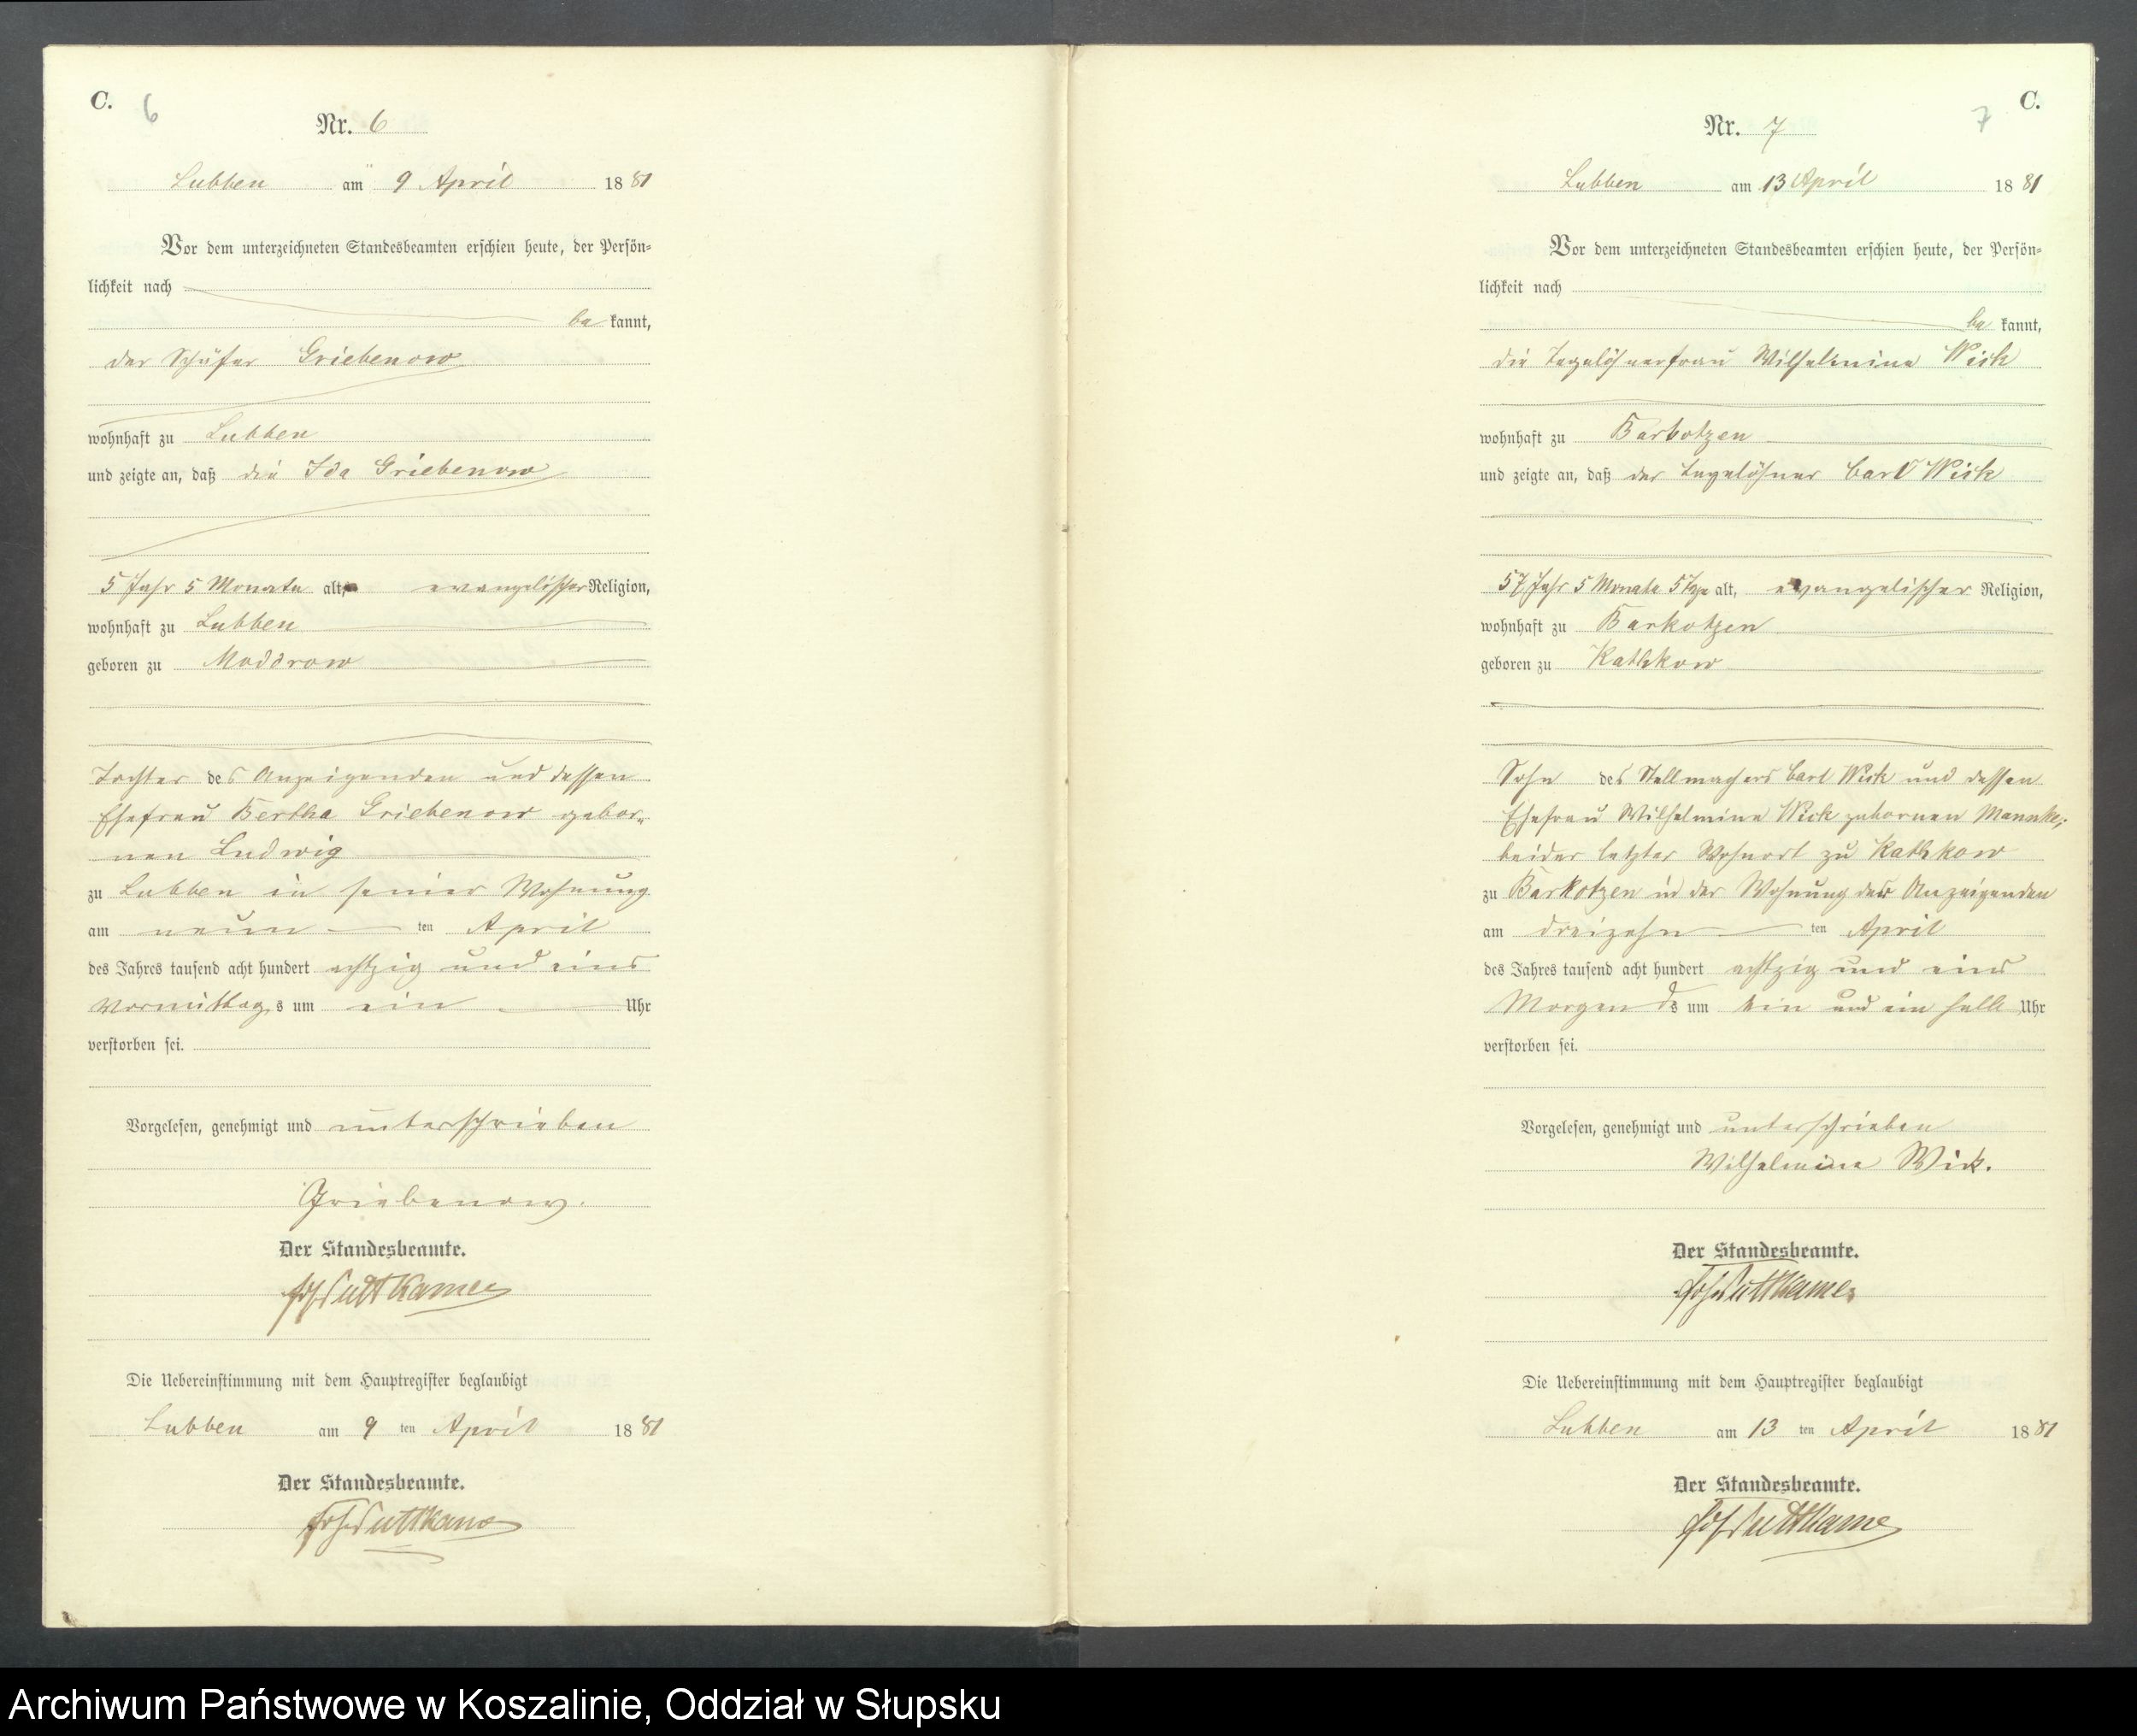 C. 6
Nr. 6
Lubben am 9 April 1881
Vor dem unterzeichneten Standesbeamten erschien heute, der Persön-
lichkeit nach
be kannt,
der Schäfer Griebenow
wohnhaft zu Lubben
und zeigte an, daß die Ida Griebenow
5 Jahr 5 Monate alt, evangelischer Religion,
wohnhaft zu Lubben
geboren zu Moddrow
Tochter des Anzeigenden und dessen
Ehefrau Bertha Griebenow gebor-
nen Ludwig
zu Lubben in seiner Wohnung
am neun ten April
des Jahres tausend acht hundert achtzig und eins
Vormittags um ein Uhr
verstorben sei.
Vorgelesen, genehmigt und unterschrieben
Griebenow.
Der Standesbeamte.
Puttkamer
Die Uebereinstimmung mit dem Hauptregister beglaubigt
Lubben am 9 ten April 1881
Der Standesbeamte.
Puttkamer
C.
7
Nr. 7
Lubben am 13 April 1881
Vor dem unterzeichneten Standesbeamten erschien heute, der Persön-
lichkeit nach
be kannt,
die Tagelöhnerfrau Wilhelmine Wick
wohnhaft zu Barkotzen
und zeigte an, daß der Tagelöhner Carl Wick
57 Jahr 5 Monate 5 Tage alt, evangelischer Religion,
wohnhaft zu Barkotzen
geboren zu Kathkow
Sohn des Stellmachers Carl Wick und dessen
Ehefrau Wilhelmine Wick gebornen Mannke,
beider letzter Wohnort zu Kathkow
zu Barkotzen in der Wohnung der Anzeigenden
am dreizehn ten April
des Jahres tausend acht hundert achtzig und eins
Morgends um ein und ein halb Uhr
verstorben sei.
Vorgelesen, genehmigt und unterschrieben
Wilhelmine Wick.
Der Standesbeamte.
Puttkamer
Die Uebereinstimmung mit dem Hauptregister beglaubigt
Lubben am 13 ten April 1881
Der Standesbeamte.
Puttkamer
Archiwum Państwowe w Koszalinie, Oddział w Słupsku